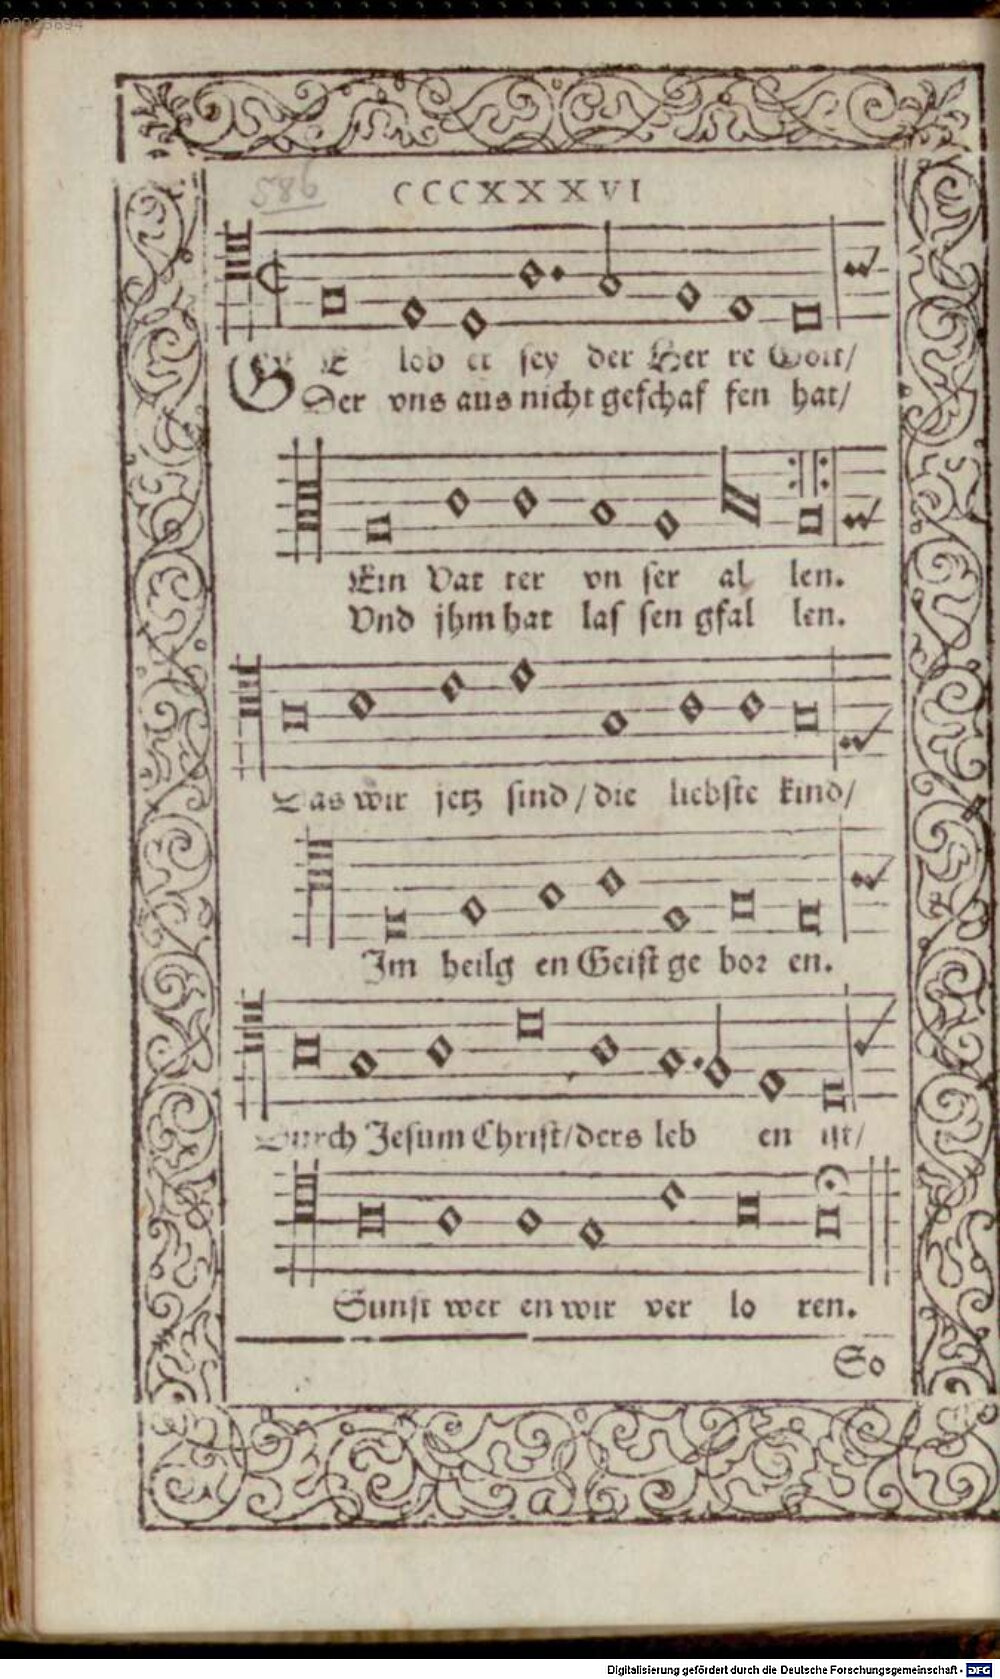 00005694
586
CCCXXXVI
GE lob et sey der Her re Gott/
Der vns aus nicht geschaf fen hat/
Ein Vat ter vn ser al len.
Vnd jhm hat las sen gfal len.
Das wir jetz sind/die liebste kind/
Im heilg en Geist ge bor en.
Durch Jesum Christ/ders leb en ist/
Sunst wer en wir ver lo ren.
So
Digitalisierung gefördert durch die Deutsche Forschungsgemeinschaft - DFG